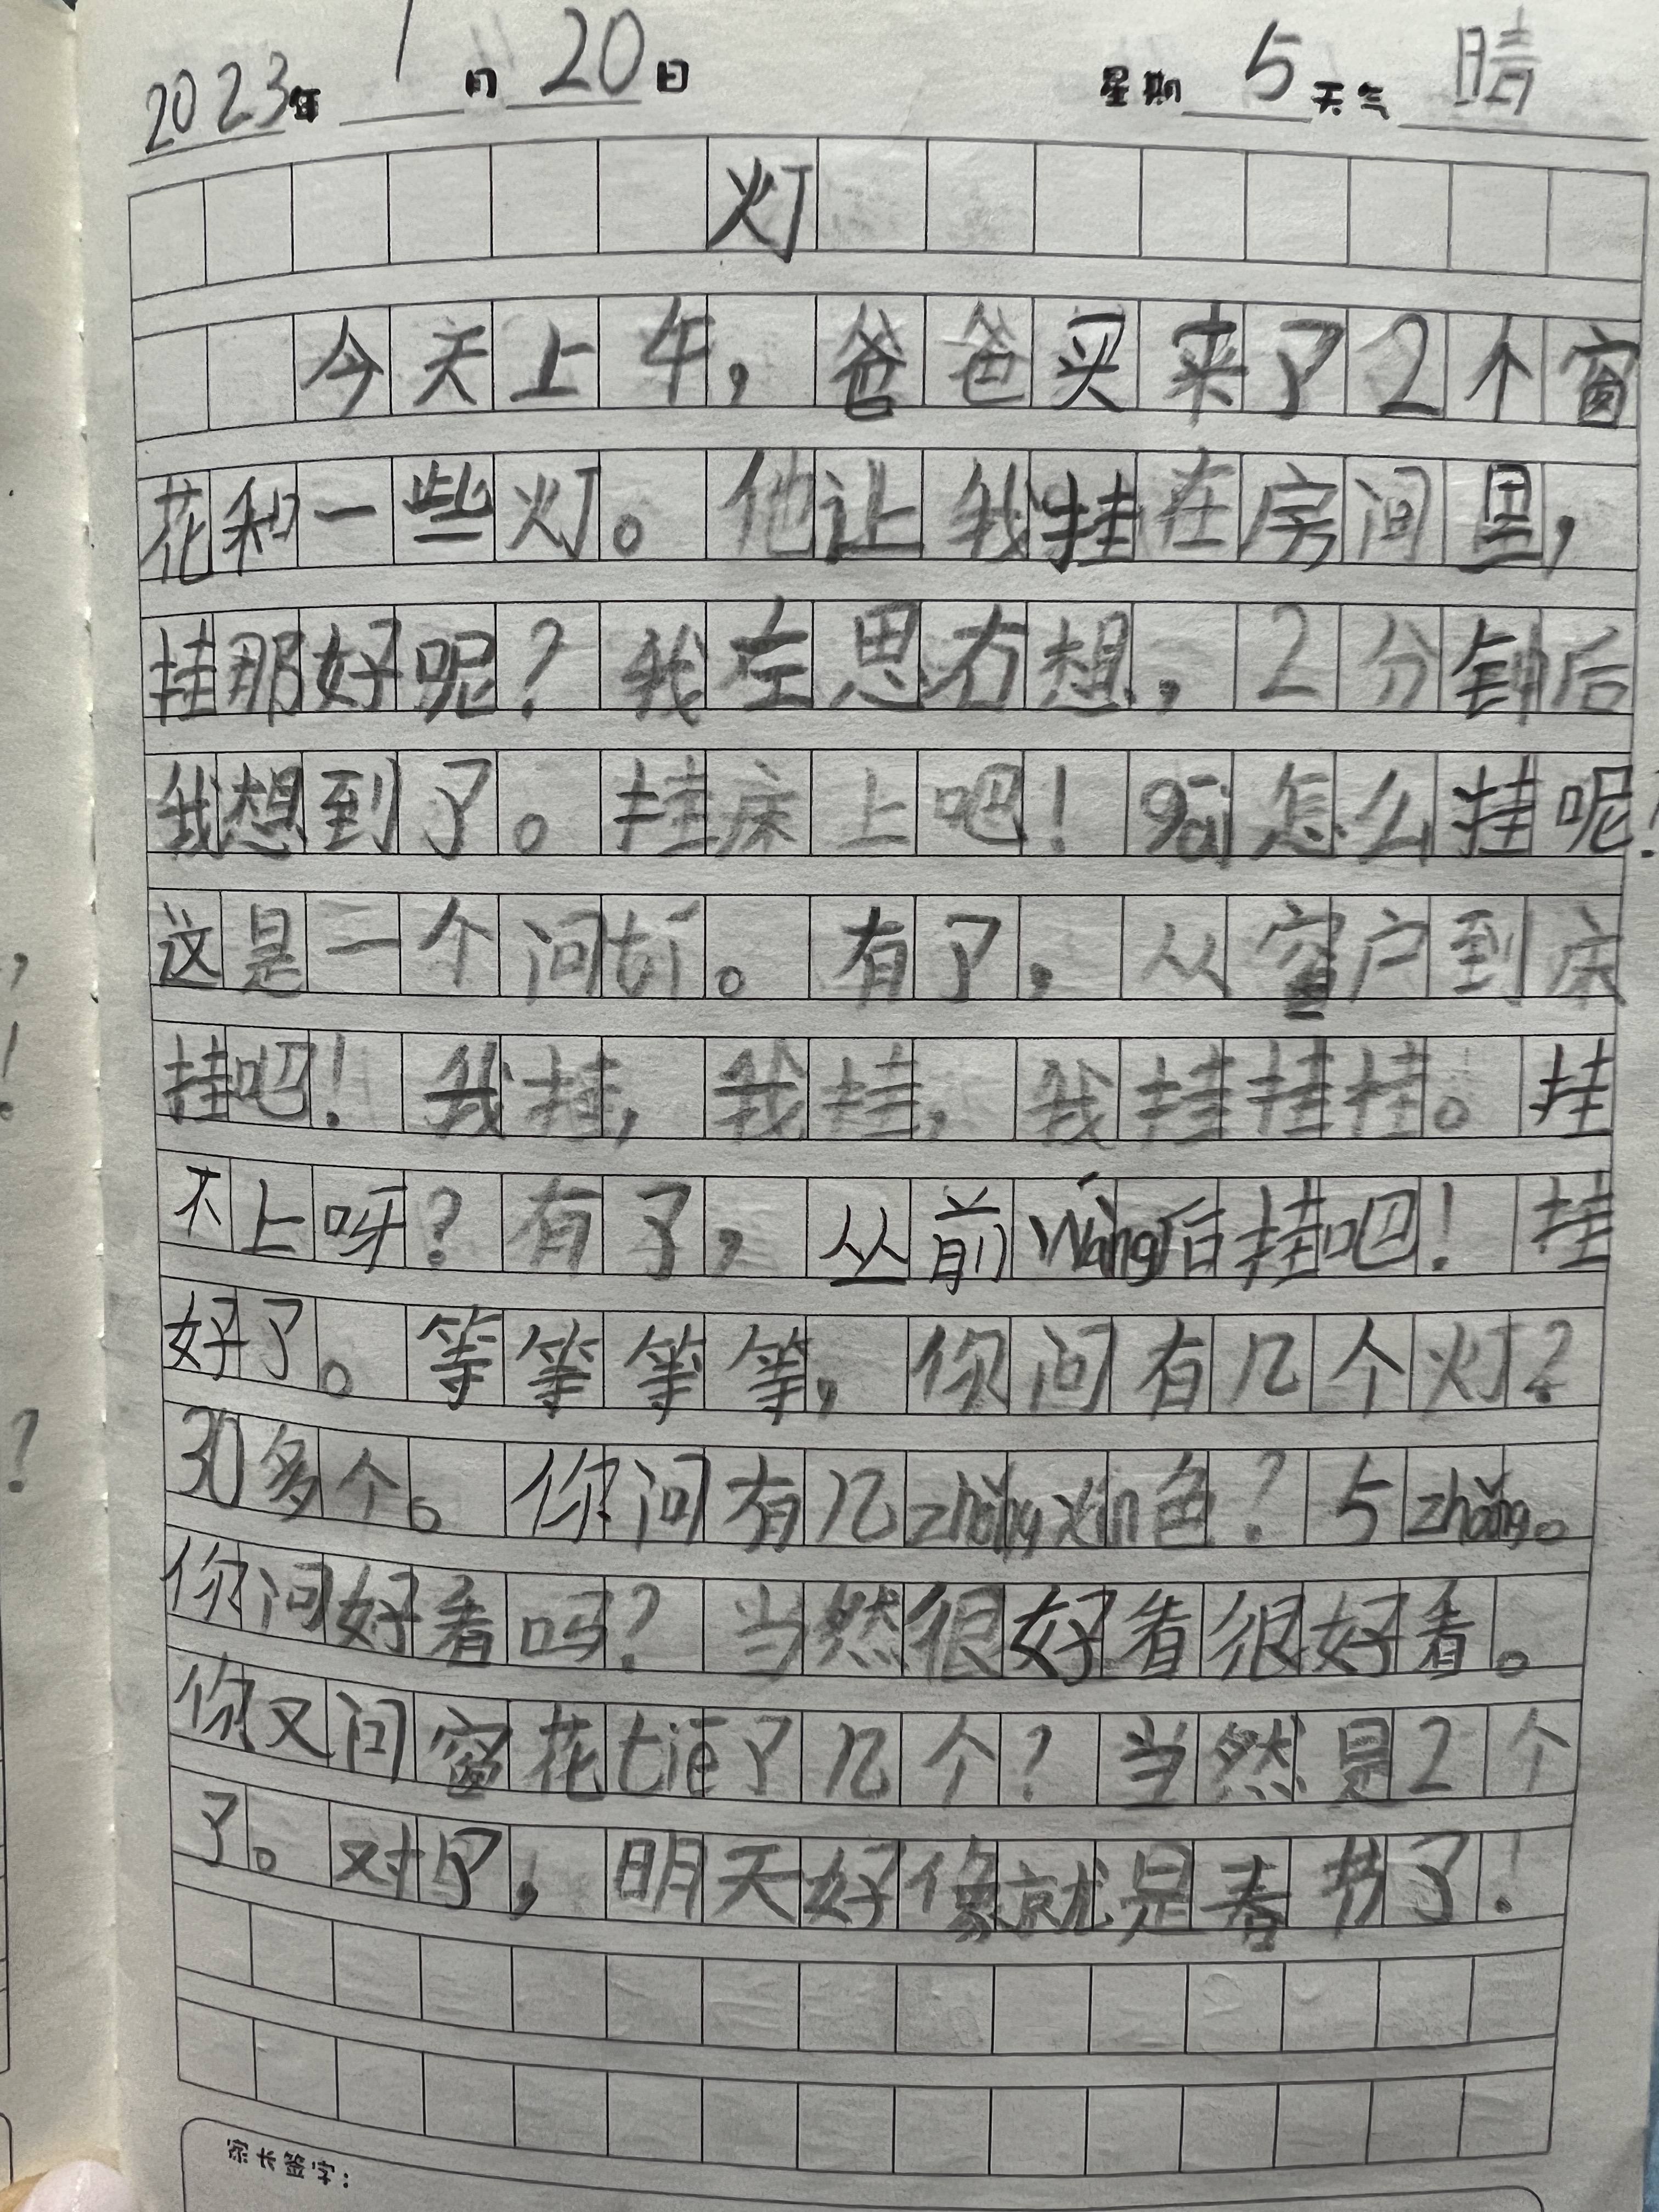 2023年 1 月 20 日 星期 5 天气 晴
灯
今天上午，爸爸买来了2个窗
花和一些灯。他让我挂在房间里，
挂那好呢？我左思右想，2分钟后
我想到了。挂床上吧！gāi怎么挂呢？
这是一个问tí。有了，从窗户到床
挂吧！我挂，我挂，我挂挂挂。挂
不上呀？有了，丛前wǎng后挂吧！挂
好了。等等等等，你问有几个灯？
30多个。你问有几zhǒng xín色？5zhǒng。
你问好看吗？当然很好看很好看。
你又问窗花tiē了几个？当然是2个
了。对了，明天好像就是春节了！
家长签字：